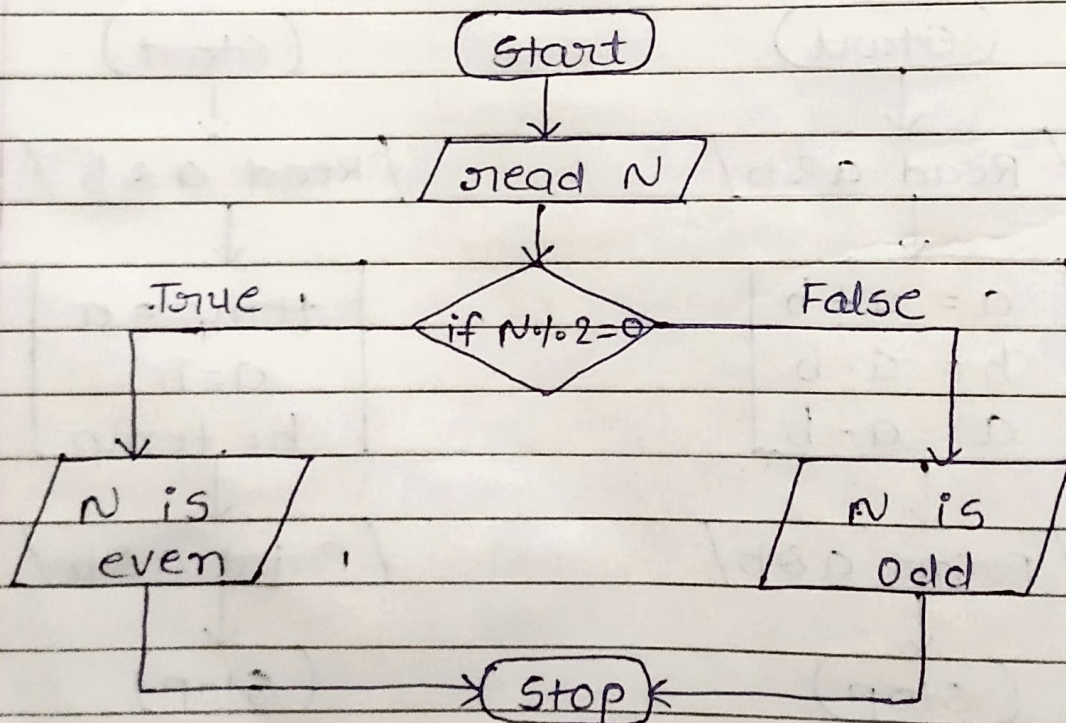 Start
read N
True
if N%2=0
False
N is
even
N is
odd
Stop